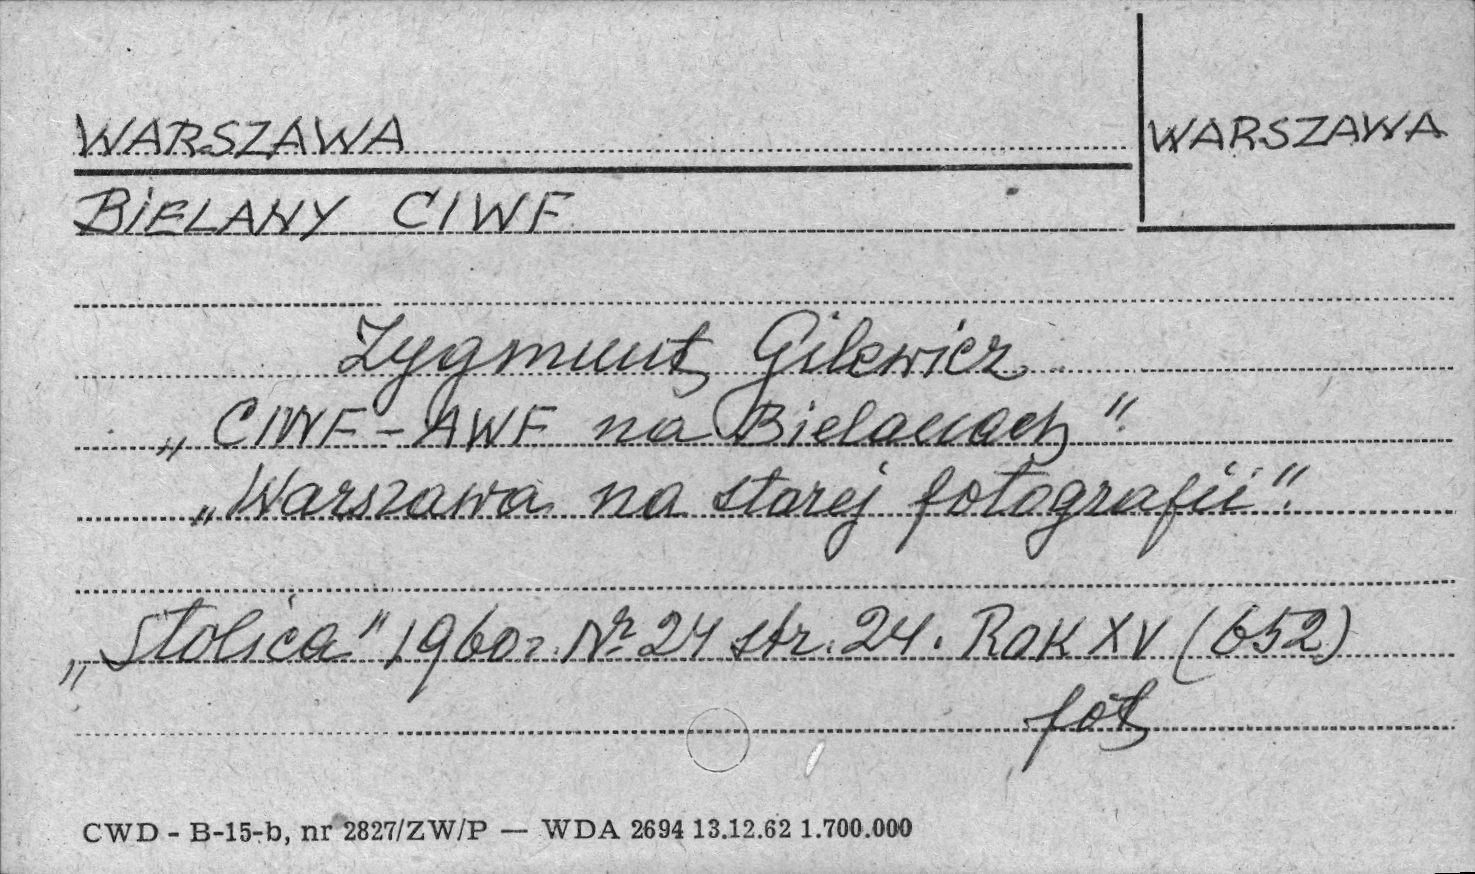 WARSZAWA
WARSZAWA
BIELANY CIWF
Zygmunt Gilewicz
„CIWF-AWF na Bielanach"
„Warszawa na starej fotografii".
„Stolica" 1960r. Nr 24 str. 24. Rok XV (652)
fot
CWD - B-15-b, nr 2827/ZW/P — WDA 2694 13.12.62 1.700.000